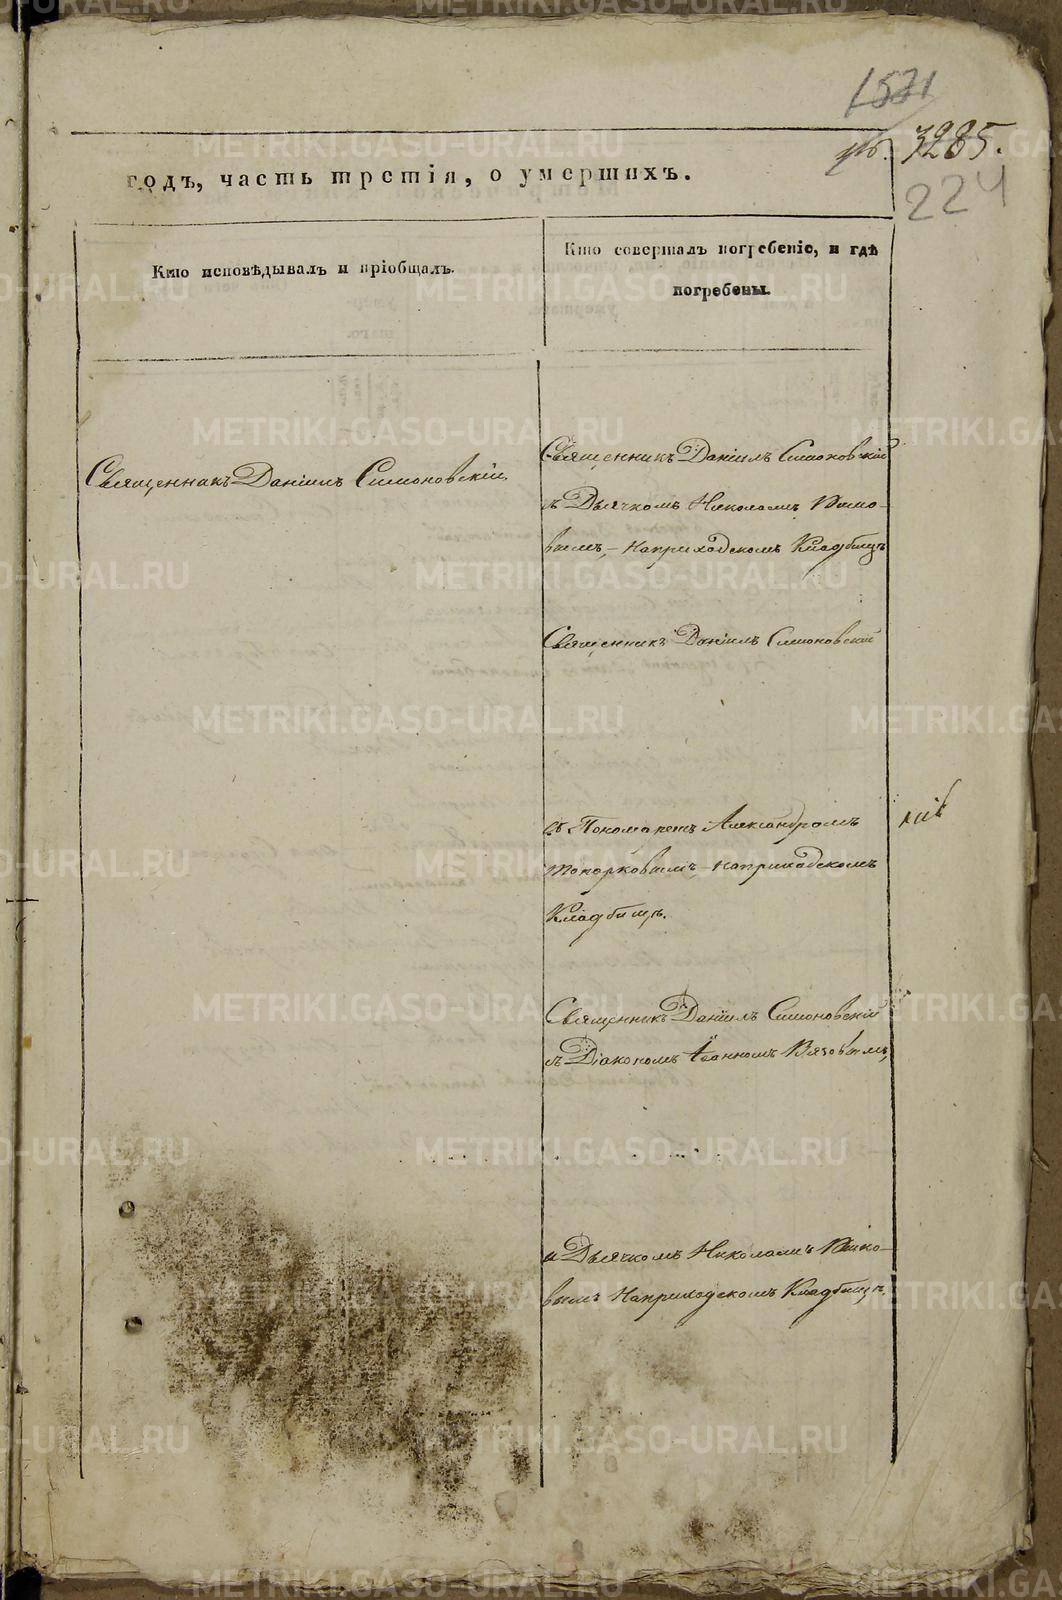 1571
3285.
224
годъ, часть третія, о умершихъ.
Кто исповѣдывалъ и пріобщалъ.
Кто совершалъ погребеніе, и гдѣ
погребены.
Священникъ Даніилъ Симоновскій
Священникъ Даніилъ Симоновскій
съ Дьячкомъ Николаемъ
вымъ, – на приходскомъ Кладбищѣ
Священникъ Даніилъ Симоновскій
съ Пономаремъ Александромъ
Топорковымъ – на приходскомъ
Кладбищѣ.
Священникъ Даніилъ Симоновскій
съ Діакономъ Іоанномъ Вязовымъ,
и Дьячкомъ Николаемъ
вымъ На приходскомъ Кладбищѣ.
METRIKI.GASO-URAL.RU